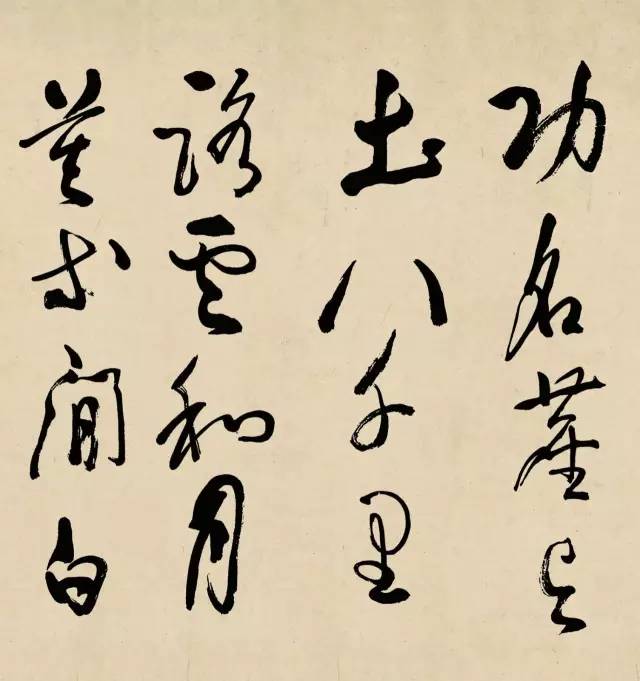 功名塵与
土八千里
路雲和月
莫等閒白